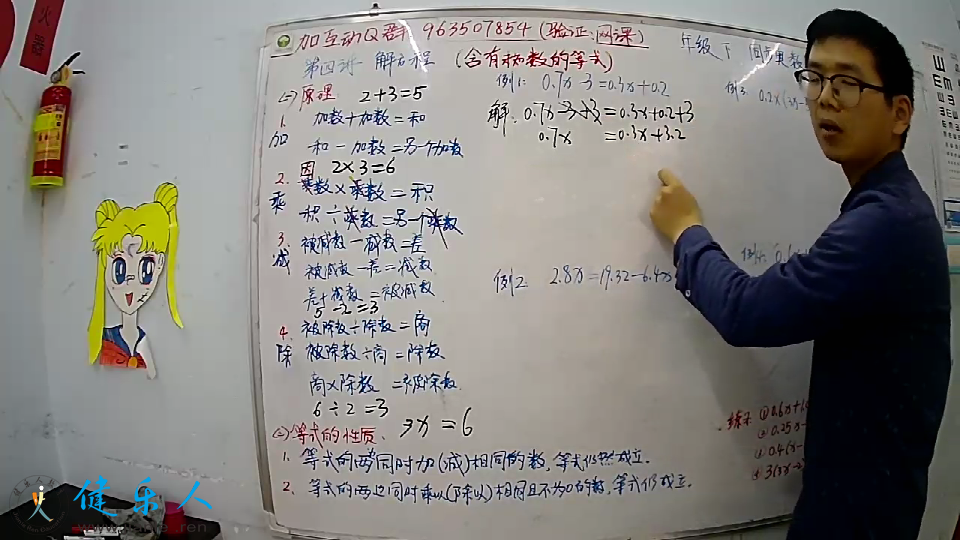 火器
加互动Q群 963507854 (验证:网课)
第四讲 解方程 (含有未知数的等式)
年级 下 同步奥数
(一)原理 2+3=5
1. 加数+加数=和
加 和-加数=另一个加数
因 2×3=6
2. 乘数×乘数=积
乘 积÷乘数=另一个乘数
3. 被减数-减数=差
减 被减数-差=减数
差+减数=被减数
5-2=3
4. 被除数÷除数=商
除 被除数÷商=除数
商×除数=被除数
6÷2=3
(二)等式的性质. 3x=6
1. 等式的两边同时加(减)相同的数,等式仍然成立.
2. 等式的两边同时乘以(除以)相同且不为0的数,等式仍成立.
例1: 0.7x-3=0.3x+0.2
解: 0.7x-3+3=0.3x+0.2+3
0.7x =0.3x+3.2
例2 2.8x=19.32-6.4x
例3 0.2x(
例4: 0.6
练习 ① 0.6x+1.
② 0.25x-
③ 0.4(x-
④ 3(3x-2
健乐人